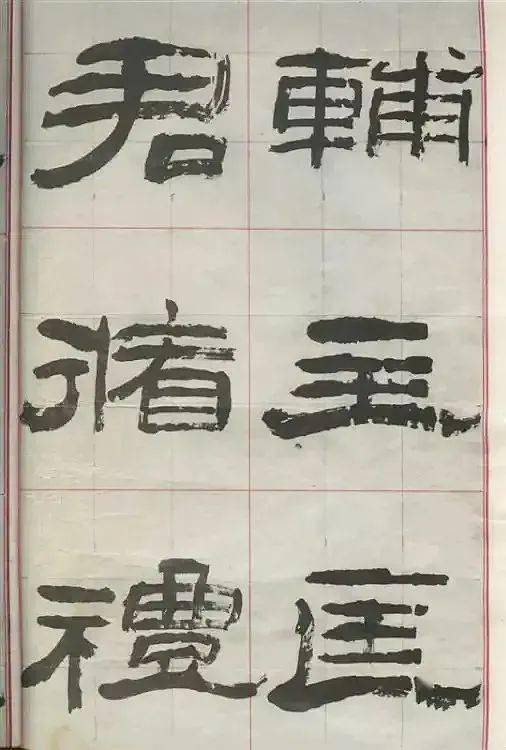 輔主匡
君循禮